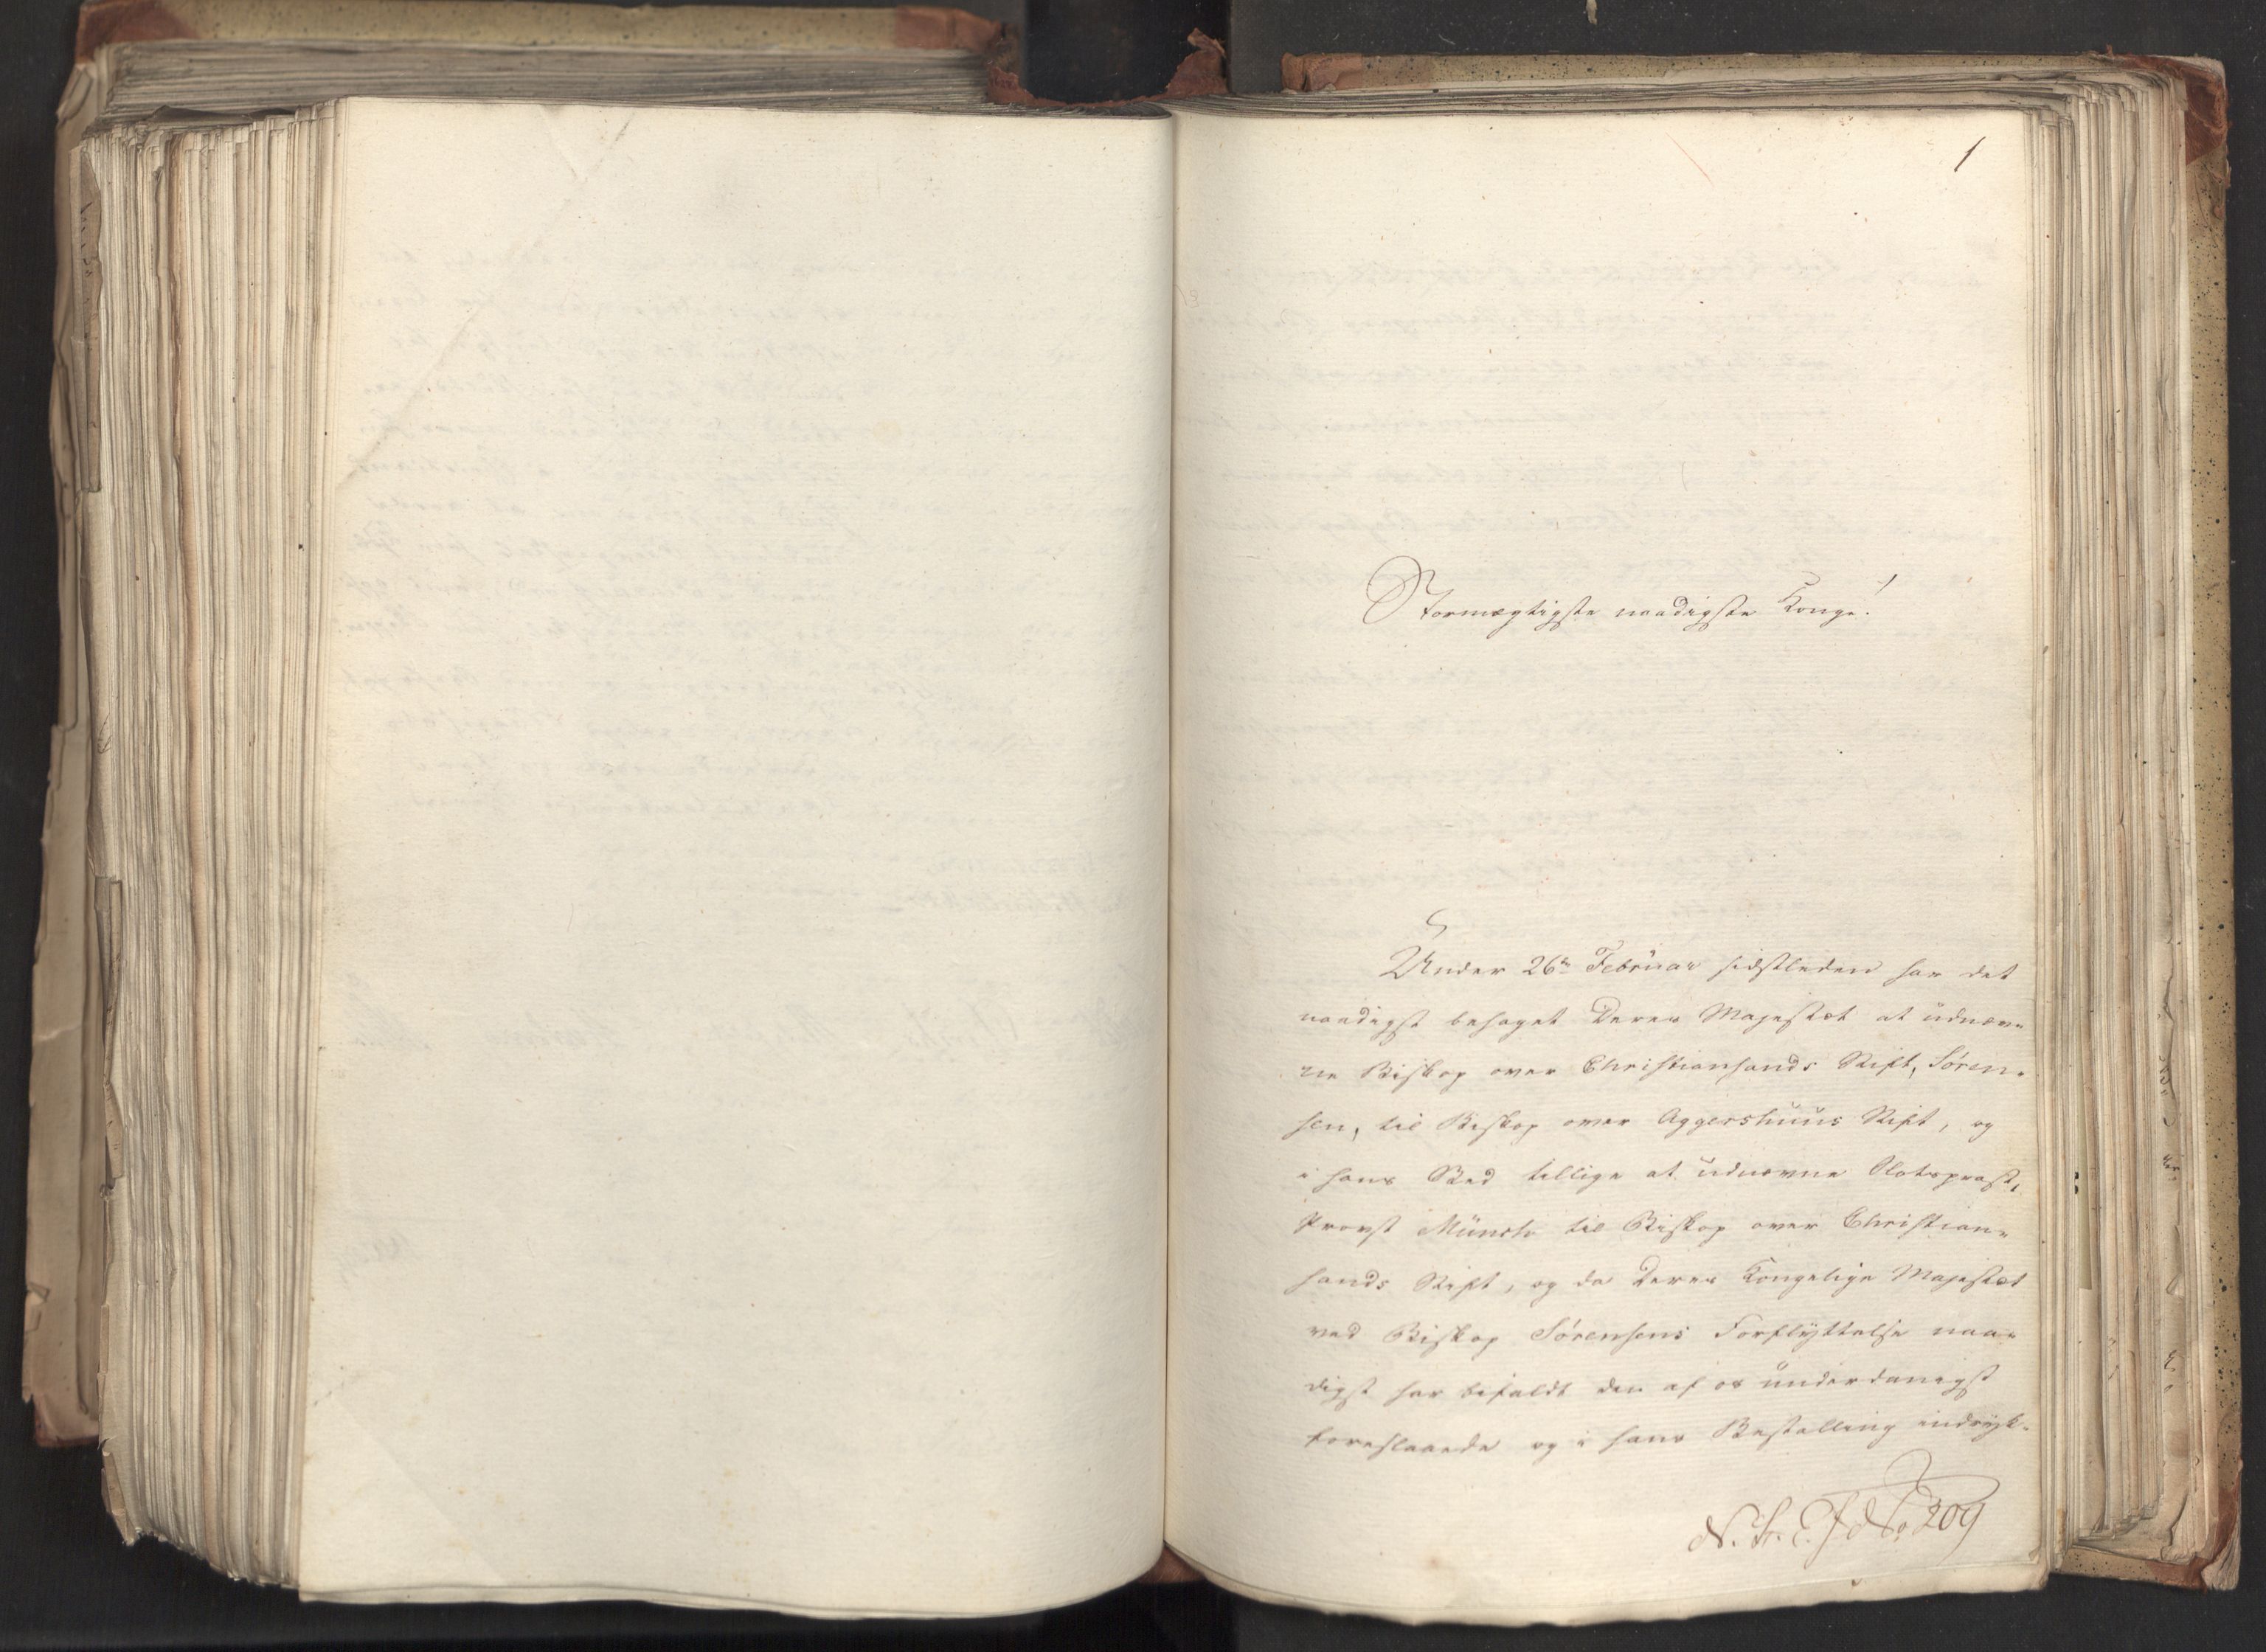 1
Stormægtigste naadigste Konge!
Under 26de Februar sidstleden har det
naadigst behaget Deres Majestæt at udnæv-
ne Biskop over Christiansands Stift, Sören-
sen, til Biskop over Aggershuus Stift, og
i hans Sted tillige at udnævne Slotspræst,
Provst Münch til Biskop over Christian-
sands Stift, og da Deres Kongelige Majestæt
ved Biskop Sörensens Forflyttelse naa-
digst har bifaldt den af os underdanigst
foreslaaede og i hans Bestalling indryk-
No 209